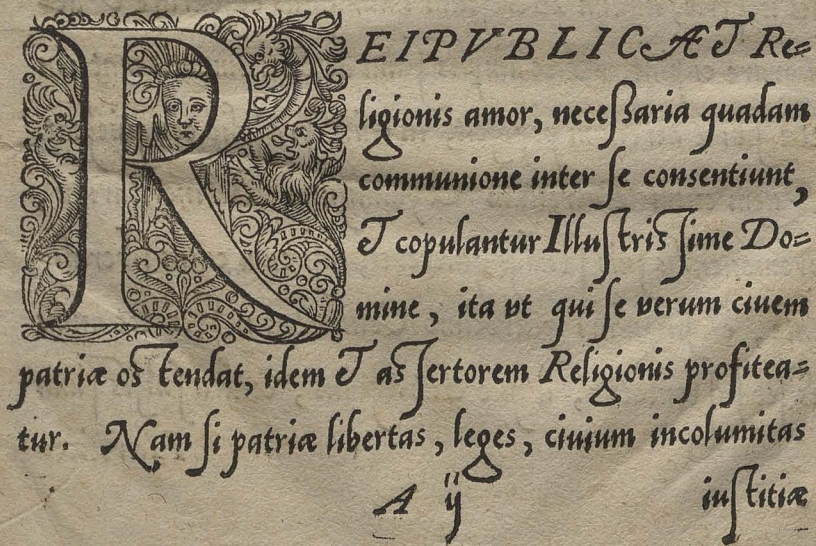 REIPVBLICÆ & Re=
ligionis amor, neceſsaria quadam
communione inter ſe consentiunt,
& copulantur Illuſtrisſime Do=
mine, ita vt qui ſe verum ciuem
patriæ ostendat, idem & asſertorem Religionis profitea=
tur. Nam ſi patriæ libertas, leges, ciuium incolumitas
A ij iuſtitiæ